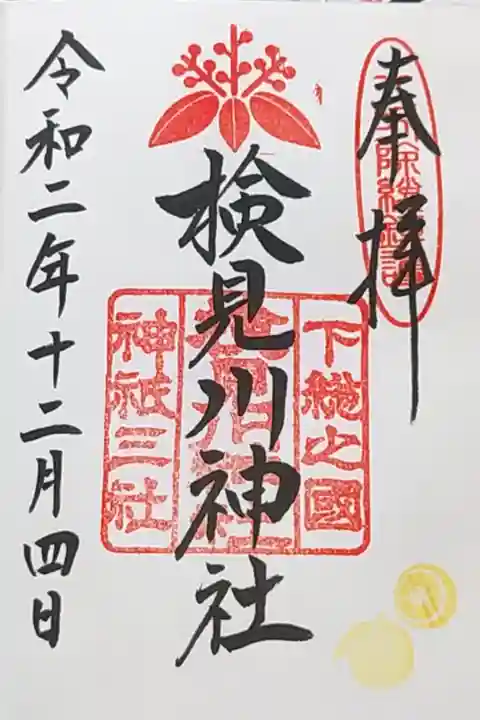 奉拝
検見川神社
下総之國
神祇三社
令和二年十二月四日